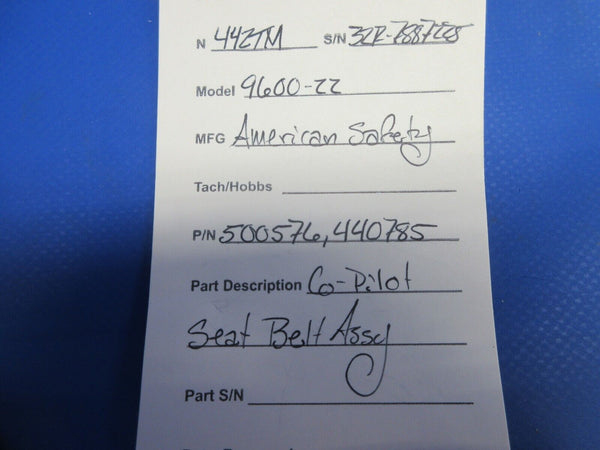 N 442TM S/N 32R-7887228
Model 9600-22
MFG American Safety
Tach/Hobbs
P/N 500576, 440785
Part Description Co-Pilot
Seat Belt Assy
Part S/N